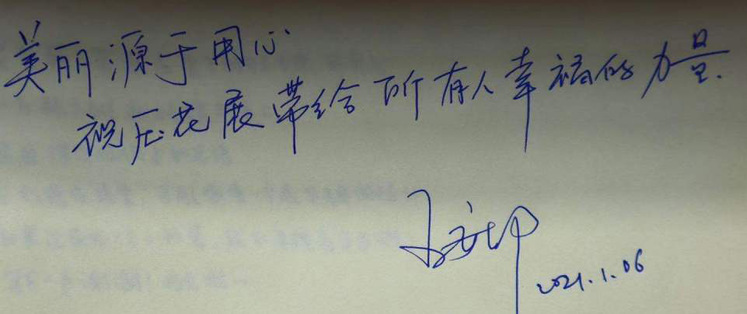 美丽源于用心
祝压花展带给所有人幸福的力量.
2021.1.06